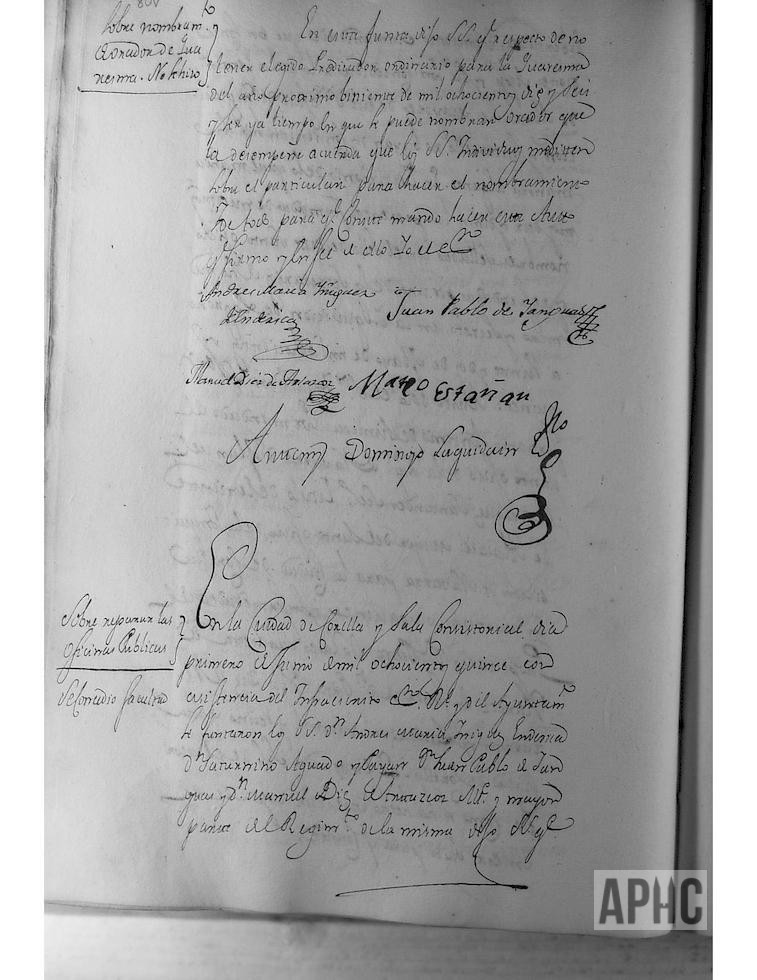 Sobre nombram.to
Orador de Qua
resma. No se hizo
En esta Junta dijo S.S. q.e respecto de no
tener elegido Predicador ordinario para la Quaresma
del año proximo biniente de mil ochocientos diez y seis
y ser ya tiempo en que se puede nombrar orador que
la desempeñe acuerda que los SS. Individuos mediten
sobre el particular para hacer el nombramiento
de todo para q.e conste mando hacer este Auto
y firmo y en fee de ello Yo el es.no
Andres Maria Yñiguez
de Enderica
Juan Pablo de Yanguas
Manuel Diez de
Marco Estañan
Antemi Domingo Laquidain
Sobre reparar las
Oficinas Publicas
Se concedio facultad
En la Ciudad de Corella y Sala Consistorial dia
primero de Junio de mil ochocientos quince con
asistencia del Infrascrito es.no R.l y del Ayuntam.to
se juntaron los SS. d.n Andres Maria Iniguez Enderica
d.n Saturnino Aguado y d.n Juan Pablo de Yan
guas y d.n Manuel Diez de y mayor
parte del Regim.to de la misma dijo q.e
APHC